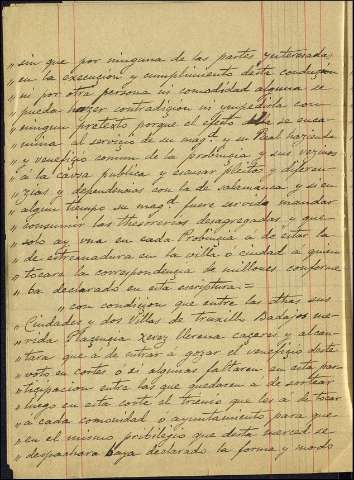 „ sin que por ninguna de las partes ynteresadas
„ en la execucion y cumplimiento desta condicion
„ ni por otra persona ni comodidad alguna se
„ pueda hazer contradicion ni ynpedirla con
„ ningun pretexto porque el efeto se enca-
„ mina al servicio de su magd. su Real hazienda
„ y veneficio comun de la probincia y sus vezinos
„ a la causa publica y scusar pleitos y diferen-
„ zias y dependencias con la de salamanca y si en
„ algun tiempo su magd. fuere servido mandar
„ consumir las thesorerias desagregadas y que
„ solo ay vna en cada Probincia a de estar la
„ de estremadura en la villa o ciudad a quien
„ tocara la correspondencia de millones conforme
„ ba declarado en esta escriptura =
„ con condicion que entre las dthas sus
„ Ciudades y dos villas de truxillo Badajos me-
„ rida Plaçencia xerez llerena cazeres y alcan-
„ tara que a de entrar a gozar el veneficio deste
„ voto en cortes o si algunas faltaren en esta par-
„ ticipacion entre las que quedaren a de sortear
„ luego en esta corte el trienio que les a de tocar
„ a cada comonidad o ayuntamiento para que
„ en el mismo pribilegio que desta merced se
„ despachara baya declarado la forma y modo